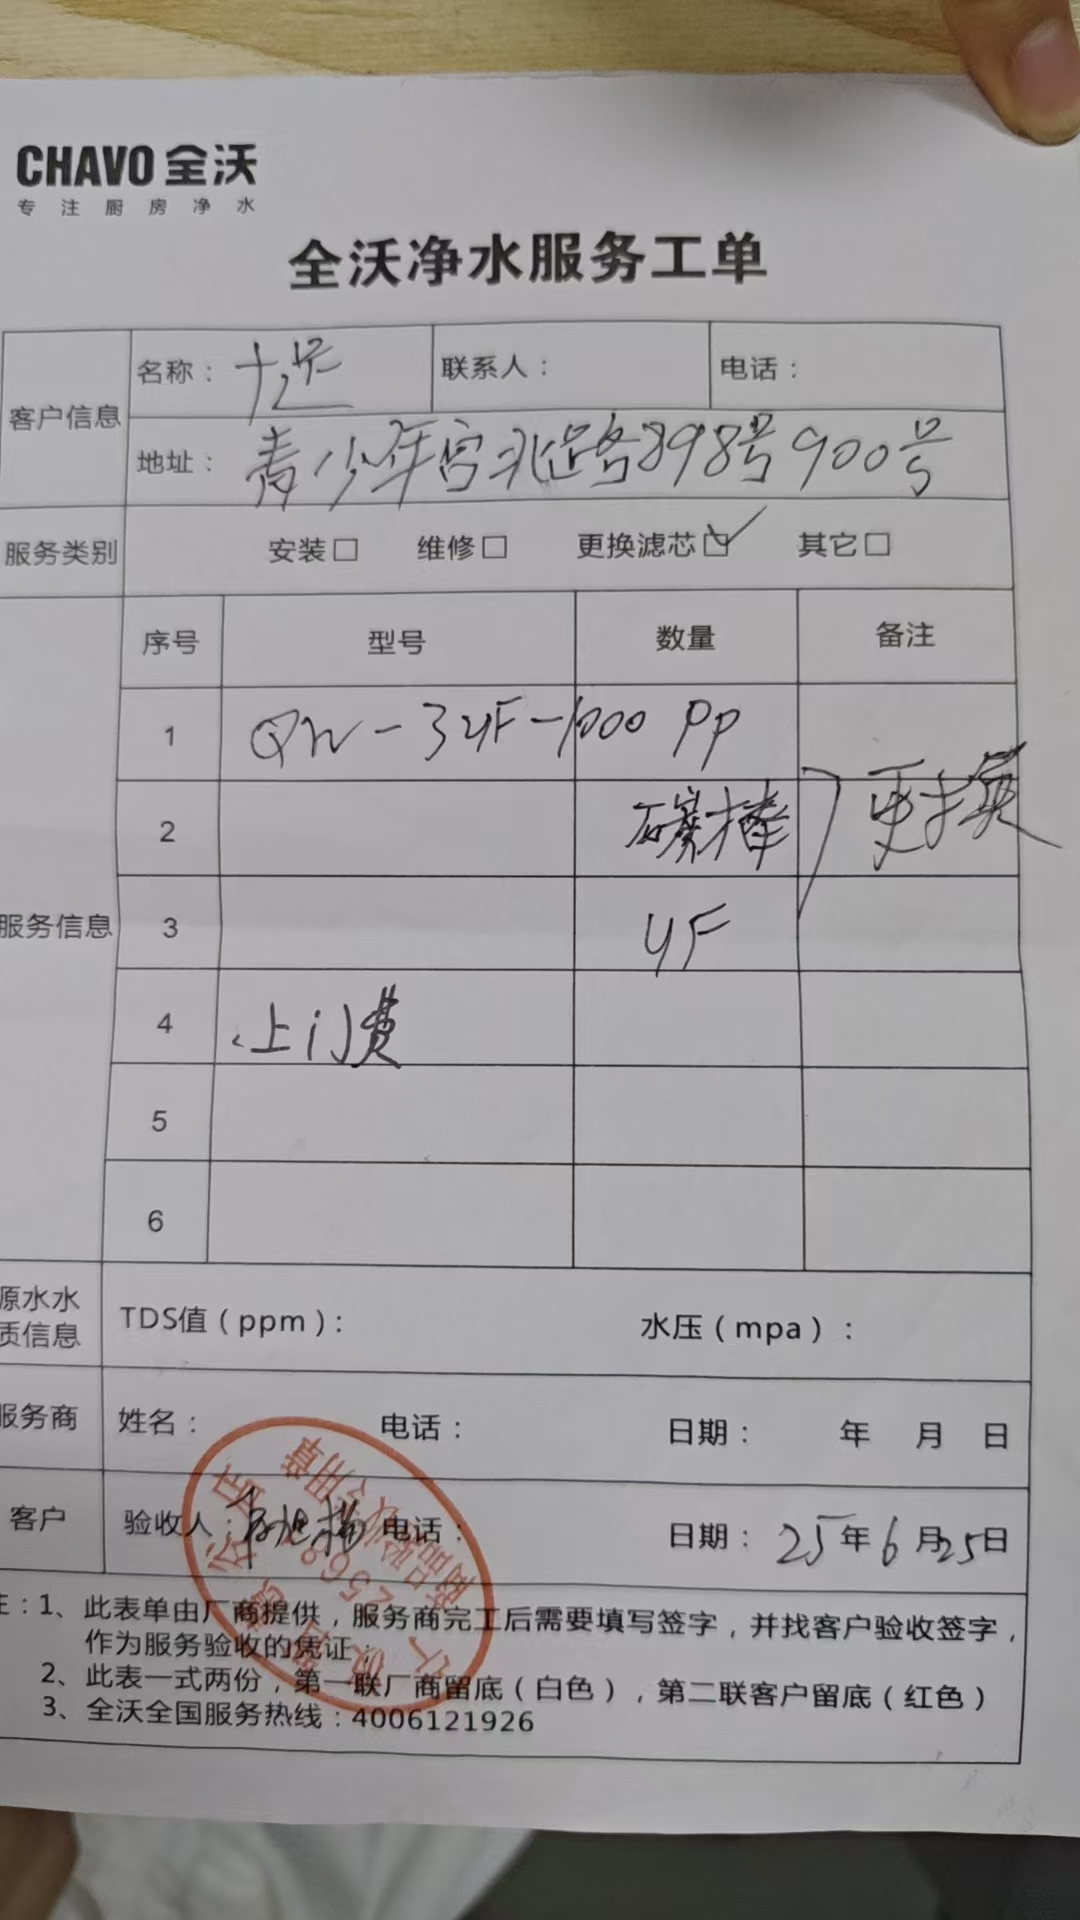 CHAVO 全沃
专注厨房净水
全沃净水服务工单
客户信息
名称：
联系人：
电话：
地址：青少年宫北路898号900号
服务类别
安装□ 维修□ 更换滤芯☑ 其它□
服务信息
序号 型号 数量 备注
1 QW-3UF-1000 PP
2 碳棒 更换
3 UF
4 上门费
5
6
源水水质信息
TDS值（ppm）：
水压（mpa）：
服务商
姓名：
电话：
日期： 年 月 日
客户
验收人：
电话：
日期：25年6月25日
注：1、此表单由厂商提供，服务商完工后需要填写签字，并找客户验收签字，
作为服务验收的凭证；
2、此表一式两份，第一联厂商留底（白色），第二联客户留底（红色）
3、全沃全国服务热线：4006121926